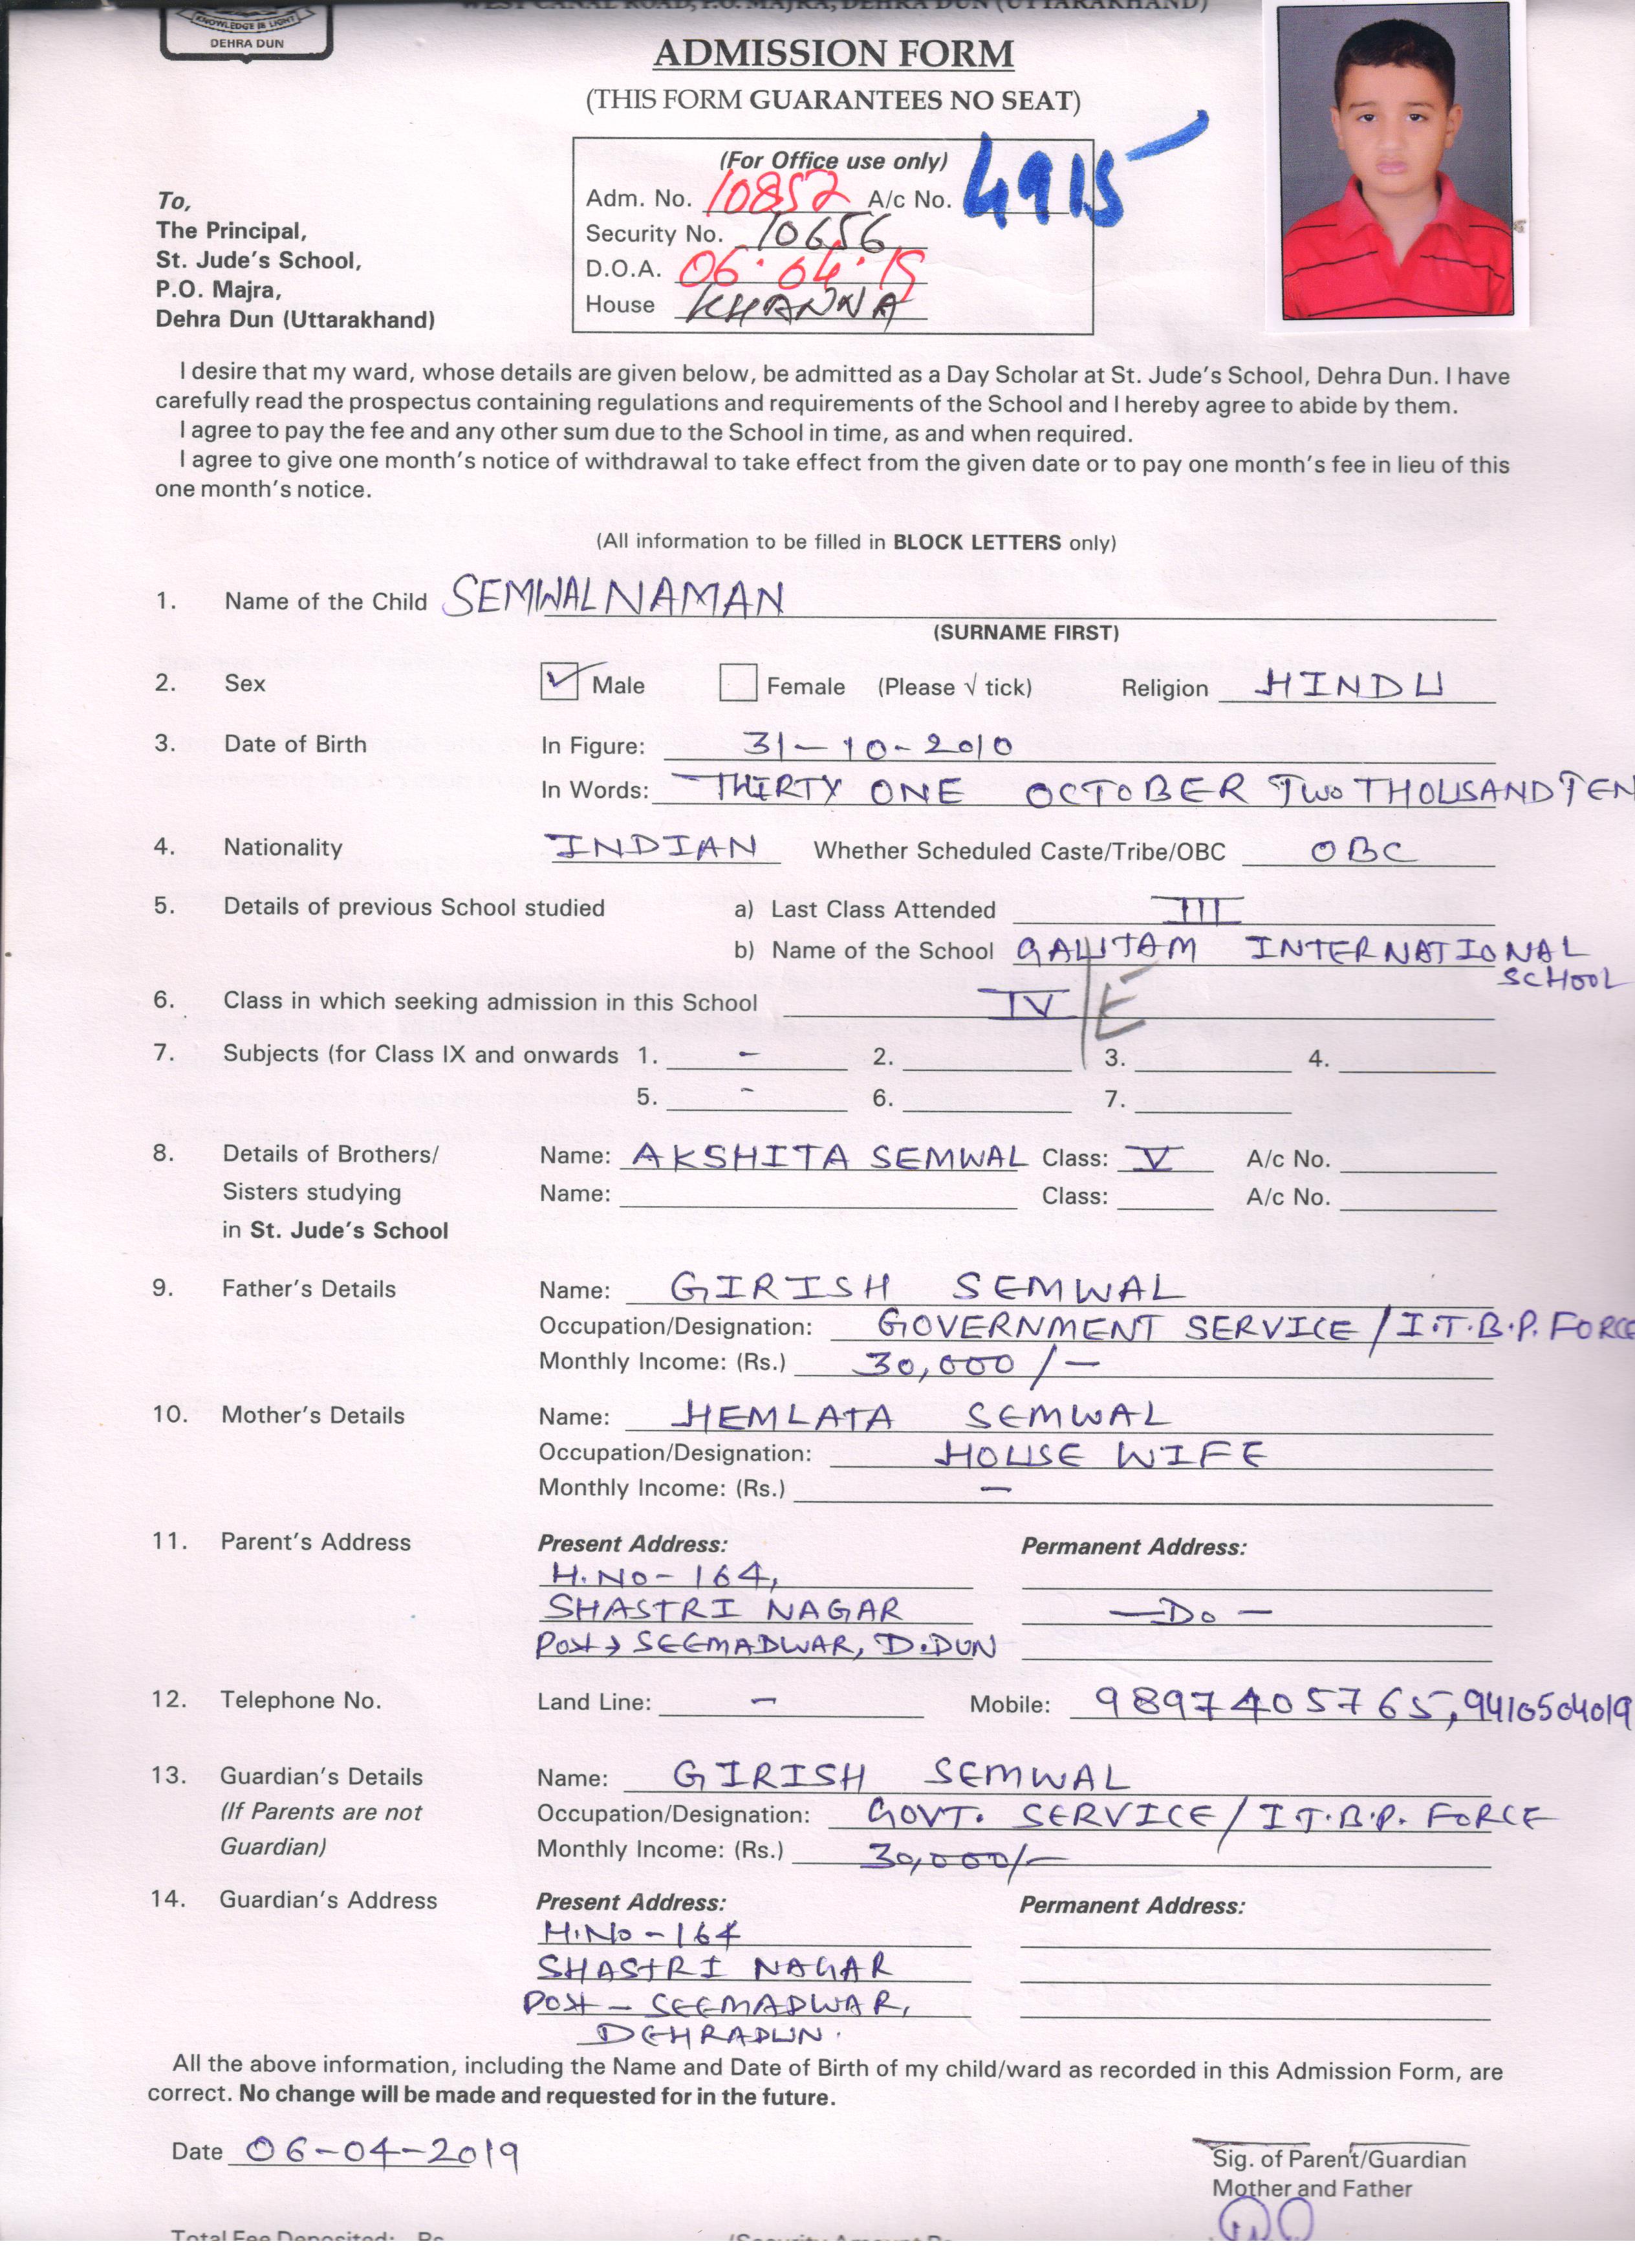 WEST CANAL ROAD, P.O. MAJRA, DEHRA DUN (UTTARAKHAND)
KNOWLEDGE IS LIGHT
DEHRA DUN
ADMISSION FORM
(THIS FORM GUARANTEES NO SEAT)
(For Office use only)
Adm. No. 10852 A/c No. 4915
Security No. 10656
D.O.A. 06.04.19
House KHANNA
To,
The Principal,
St. Jude's School,
P.O. Majra,
Dehra Dun (Uttarakhand)
I desire that my ward, whose details are given below, be admitted as a Day Scholar at St. Jude's School, Dehra Dun. I have
carefully read the prospectus containing regulations and requirements of the School and I hereby agree to abide by them.
I agree to pay the fee and any other sum due to the School in time, as and when required.
I agree to give one month's notice of withdrawal to take effect from the given date or to pay one month's fee in lieu of this
one month's notice.
(All information to be filled in BLOCK LETTERS only)
1. Name of the Child SEMWAL NAMAN
(SURNAME FIRST)
2. Sex ✓ Male Female (Please √ tick) Religion HINDU
3. Date of Birth In Figure: 31-10-2010
In Words: THIRTY ONE OCTOBER TWO THOUSAND TEN
4. Nationality INDIAN Whether Scheduled Caste/Tribe/OBC OBC
5. Details of previous School studied a) Last Class Attended III
b) Name of the School GAUTAM INTERNATIONAL
SCHOOL
6. Class in which seeking admission in this School IV/E
7. Subjects (for Class IX and onwards 1. - 2. 3. 4.
5. - 6. 7.
8. Details of Brothers/ Name: AKSHITA SEMWAL Class: V A/c No.
Sisters studying Name: Class: A/c No.
in St. Jude's School
9. Father's Details Name: GIRISH SEMWAL
Occupation/Designation: GOVERNMENT SERVICE / I.T.B.P. FORCE
Monthly Income: (Rs.) 30,000/-
10. Mother's Details Name: HEMLATA SEMWAL
Occupation/Designation: HOUSE WIFE
Monthly Income: (Rs.) -
11. Parent's Address Present Address: Permanent Address:
H.NO- 164,
SHASTRI NAGAR -Do-
Post → SEEMADWAR, D.DUN
12. Telephone No. Land Line: - Mobile: 9897405765, 9410504019
13. Guardian's Details Name: GIRISH SEMWAL
(If Parents are not Occupation/Designation: GOVT. SERVICE / I.T.B.P. FORCE
Guardian) Monthly Income: (Rs.) 30,000/-
14. Guardian's Address Present Address: Permanent Address:
H.No-164
SHASTRI NAGAR
Post - SEEMADWAR,
DEHRADUN.
All the above information, including the Name and Date of Birth of my child/ward as recorded in this Admission Form, are
correct. No change will be made and requested for in the future.
Date 06-04-2019
Sig. of Parent/Guardian
Mother and Father
Total Fee Deposited: Rs.
(Security Amount Rs.